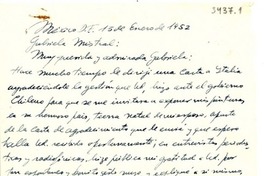 3437.1
México D.F. 15 de Enero de 1952
Gabriela Mistral:
Muy querida y admirada Gabriela:
Hace mucho tiempo le dirijí una carta a Italia
agradeciendole la gestión que Ud. hizo ante el gobierno
Chileno para que se me invitara a exponer mis pinturas
en su hermoso país, tierra natal de mi esposo, aparte
de la carta de agradecimiento que le envié y que espero
halla Ud. recibido oportunamente; en entrevistas
y radiofónicas, hize público mi gratitud a Ud. por
tan espontaneo y bonito gesto